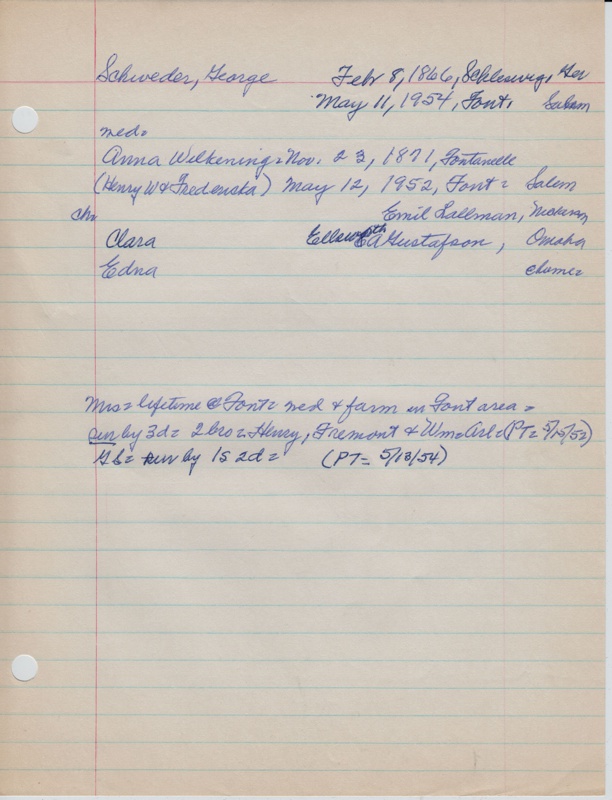 Schweder, George Feb 8, 1866, Schleswig, Ger
May 11, 1954, Font. Salem
med=
Anna Wilkening = Nov. 23, 1871, Fontanelle
(Henry W & Fredericka) May 12, 1952, Font = Salem
ch= Emil Sallman, Nickerson
Clara Ellsworth A Gustafson, Omaha
Edna @home=
Mrs = lifetime @ Font = med & farm in Font area =
sur by 3d = 2 bro = Henry, Fremont & Wm = Arl = (PT = 5/15/52)
sur by 1s 2d = (PT = 5/13/54)